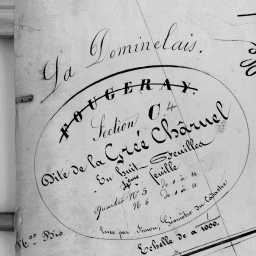 La Dominelais.
FOUGERAY.
Section C4
Dite de la Grée Châruel
En huit feuilles
4ème feuille
Numéros N° 5
N° 6
Levée par Géomètre du Cadastre
Echelle de 1 à 1000.